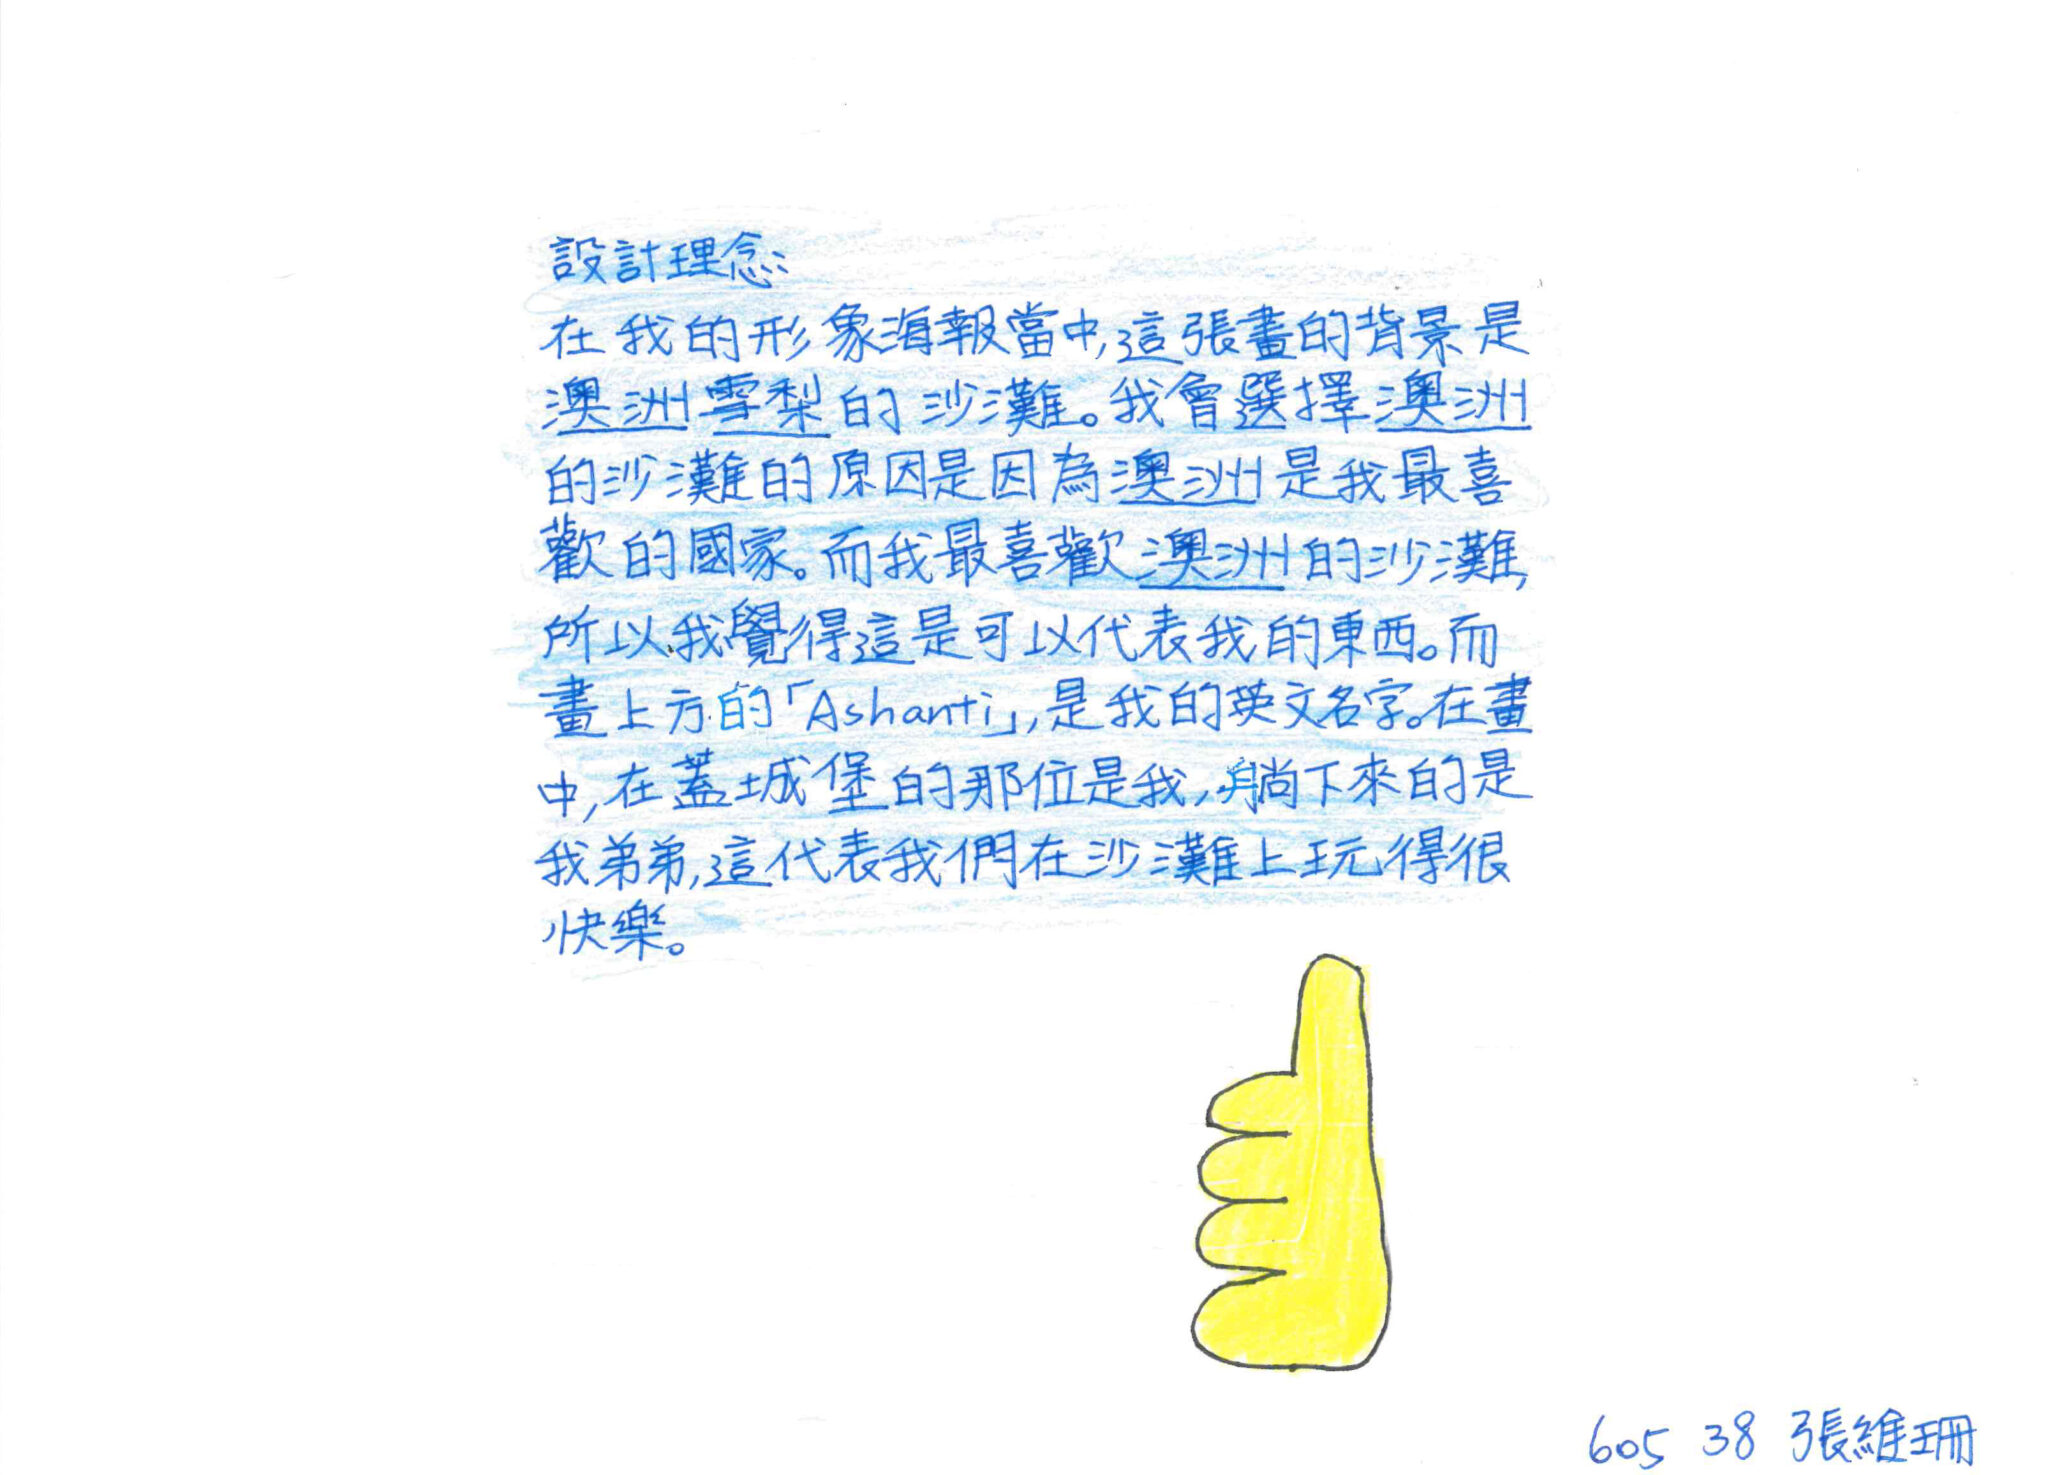 設計理念:
在我的形象海報當中,這張畫的背景是
澳洲雪梨的沙灘。我會選擇澳洲
的沙灘的原因是因為澳洲是我最喜
歡的國家。而我最喜歡澳洲的沙灘,
所以我覺得這是可以代表我的東西。而
畫上方的「Ashanti」,是我的英文名字。在畫
中,在蓋城堡的那位是我,躺下來的是
我弟弟,這代表我們在沙灘上玩得很
快樂。
605 38 張維珊